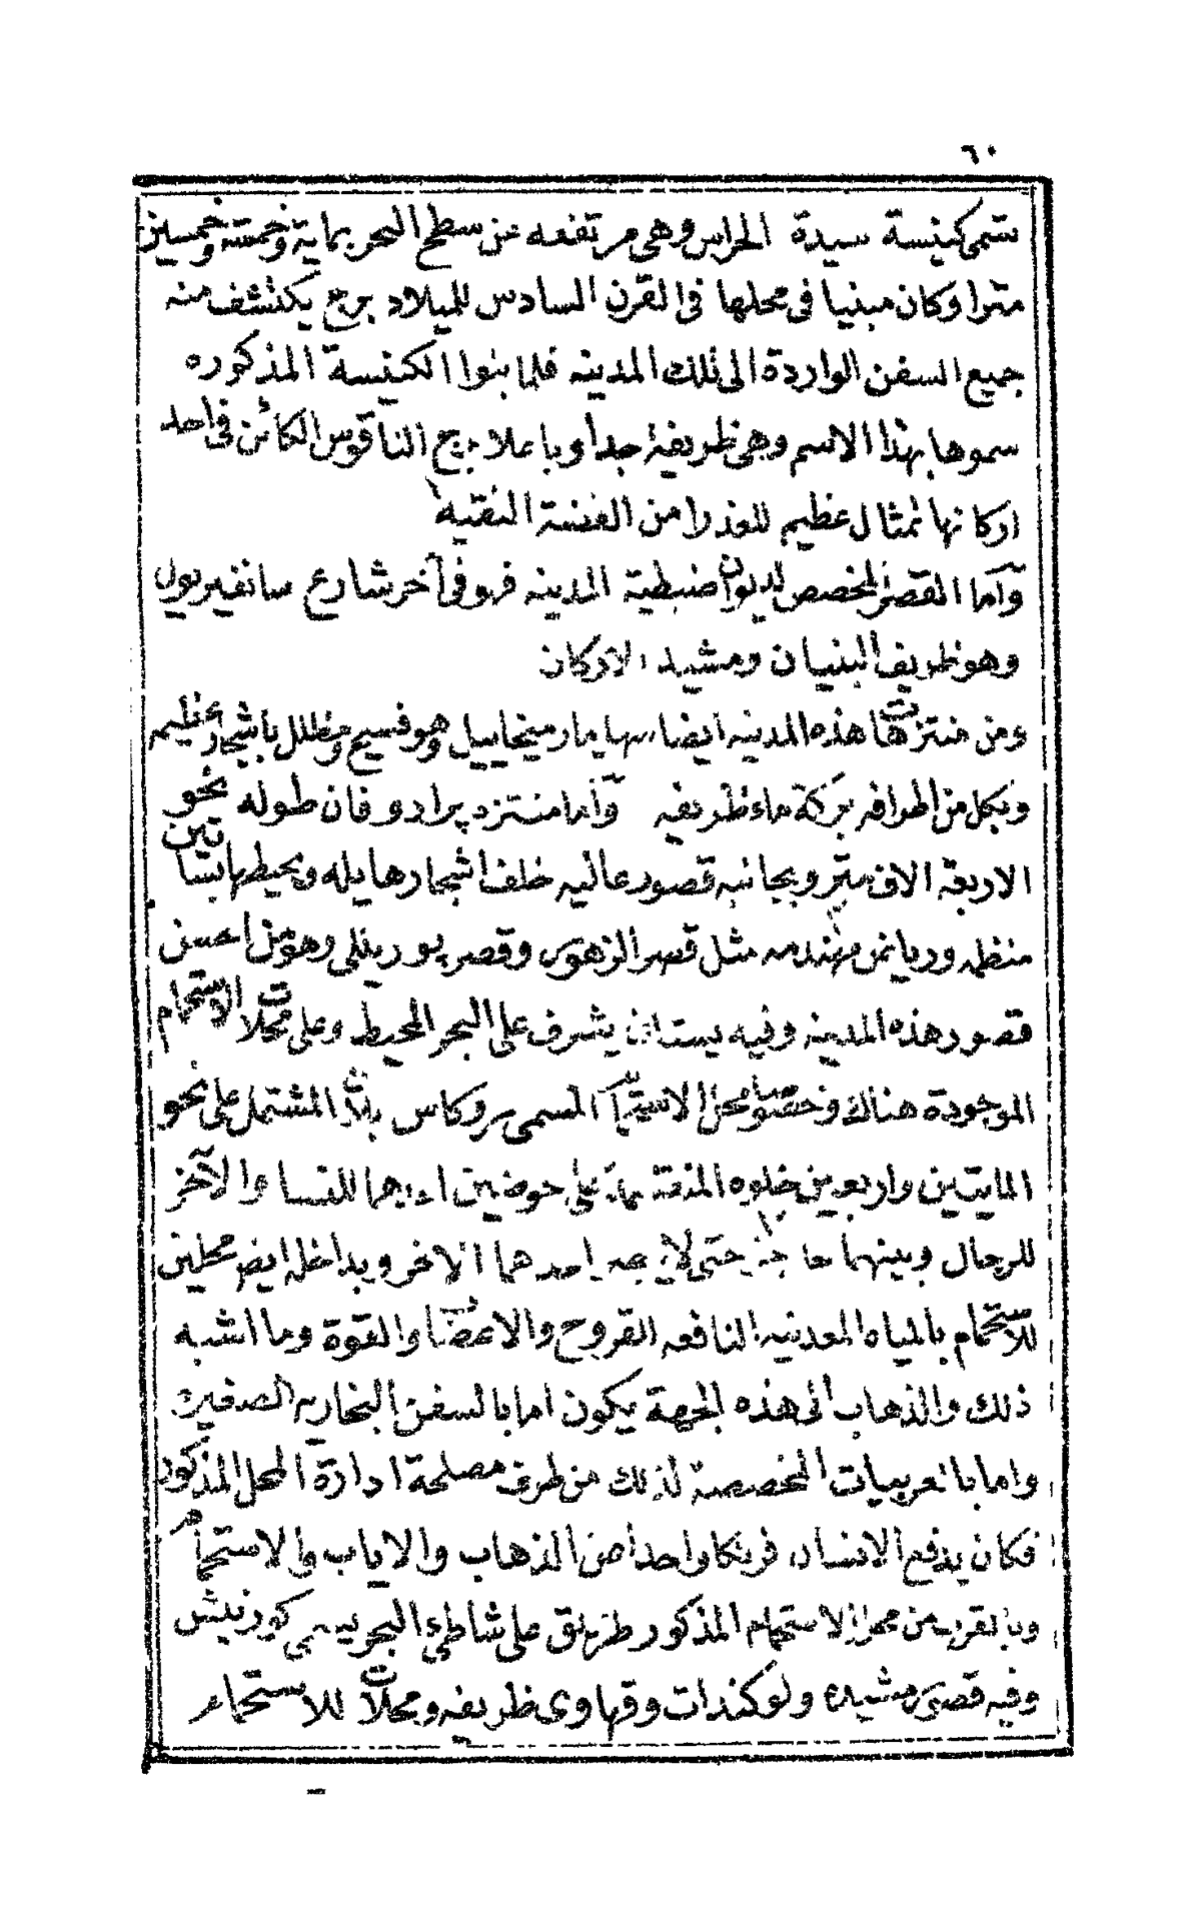 ٦٠
تسمى كنيسة سيدة الحراس وهى مرتفعه عن سطح البحر بماية وخمسة وخمسين
مترا وكان مبنيا فى محلها فى القرن السادس للميلاد برج يكتشف منه
جميع السفن الواردة الى تلك المدينه فلما بنوا الكنيسة المذكوره
سموها بهذا الاسم وهى ظريفة جدا وباعلا برج الناقوس الكائن فى احد
اركانها تمثال عظيم للعذرا من الفضة النقية
وأما القصر المخصص لديوان ضبطية المدينه فهو فى آخر شارع سانفيريول
وهو ظريف البنيان ومشيد الاركان
ومن منتزهات هذه المدينه ايضا بها يمار مينحاييل وهو فسيح ومظلل باشجار عظيم
وبكل من اطرافه بركة ماء ظريفه وأما منتزه پرادو فان طوله نحو
الاربعة الاف متر وبجانبه قصور عاليه خلف اشجار هايله ويحيطها بساتين
منظمه ورياض مهندمه مثل قصر الزهور وقصر بوريللى وهو من احسن
قصور هذه المدينه وفيه بستان يشرف على البحر المحيط وعلى محلات الاستحمام
الموجودة هناك وخصوصا محل الاستحمام المسمى روكاس بلان المشتمل على نحو
المايتين واربعين خلوه المنقسمة على حوضين احدهما للنسا والآخر
للرجال وبينهما حاجز حتى لا يبصر احدهما الاخر وبداخله ايضا محلين
للاستحمام بالمياه المعدنيه النافعه القروح والاعضا والقوة وما اشبه
ذلك والذهاب الى هذه الجهة يكون اما بالسفن البخاريه الصغيره
واما بالعربيات المخصصة لذلك من طرف مصلحة ادارة المحل المذكور
فكان يدفع الانسان فرنكا واحدا من الذهاب والاياب والاستحمام
وبالقرب من محل الاستحمام المذكور طريق على شاطئ البحر يسمى كورنيش
وفيه قصور مشيده ولوكندات وقهاوى ظريفه ومحلات للاستحمام